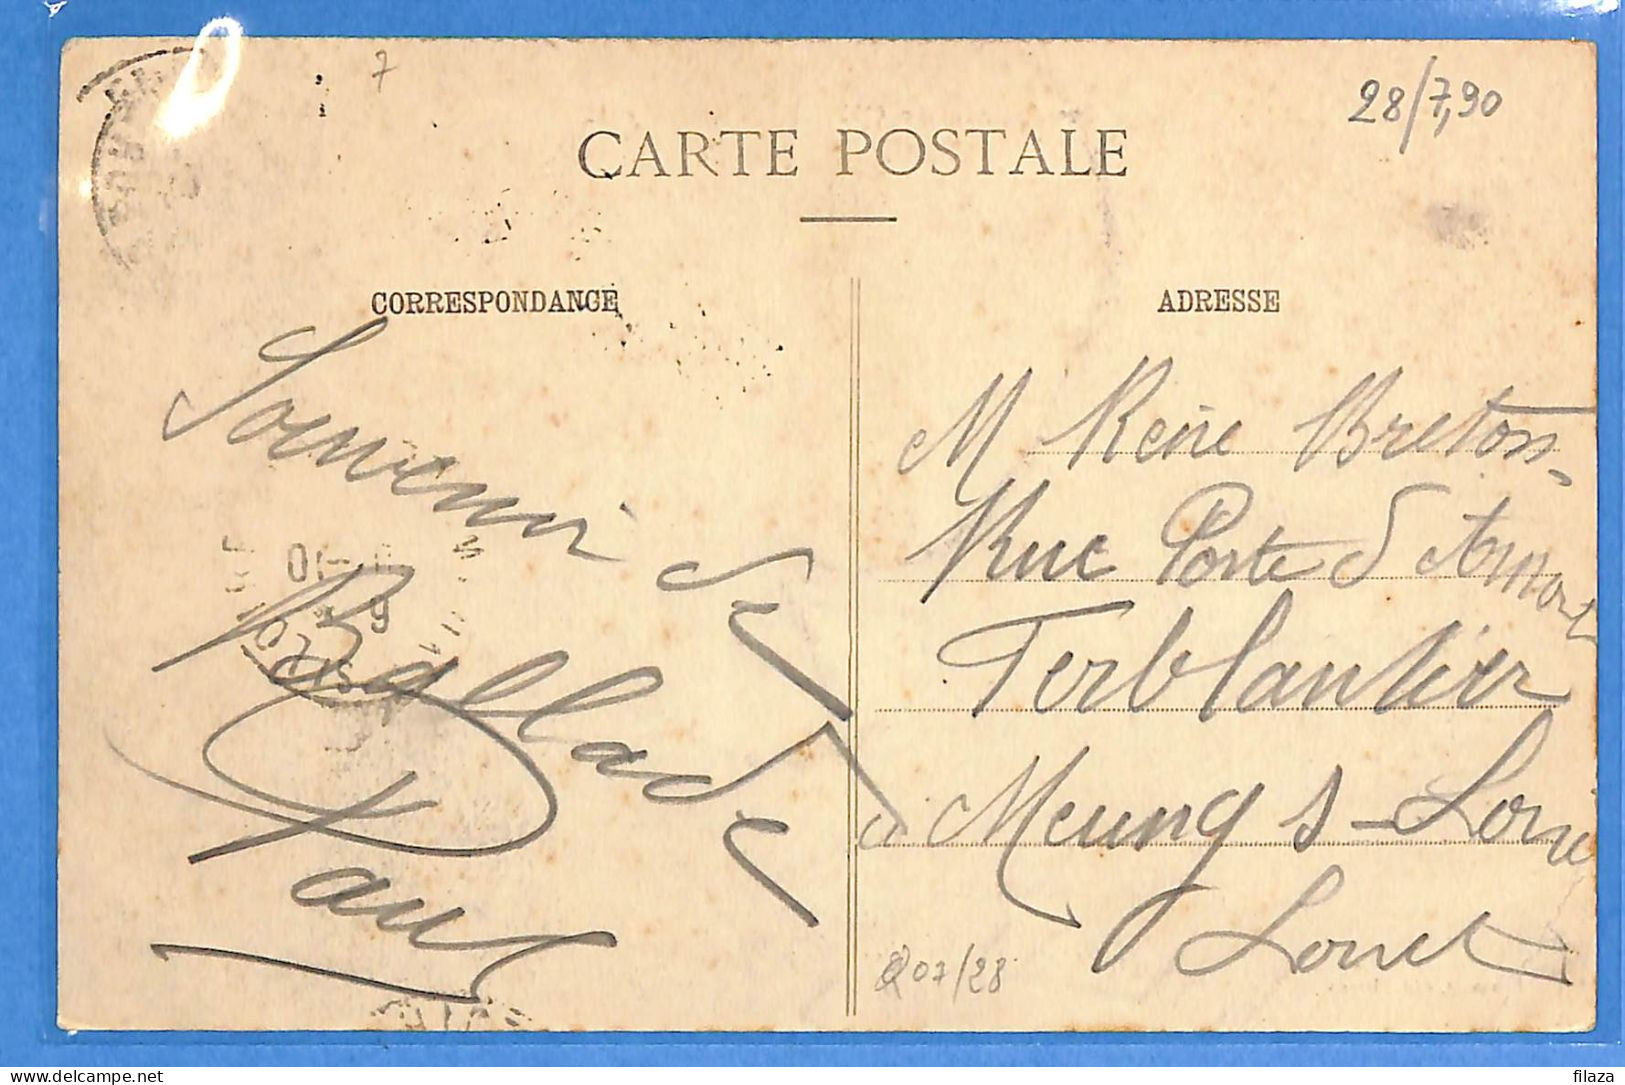 7
28/7,90
CARTE POSTALE
CORRESPONDANCE
Souvenir de
Ballade
Paul
ADRESSE
M René Breton
Rue Porte d'Amont
Ferblantier
a Meung s-Loire
Loiret
207/28
delcampe.net
filaza